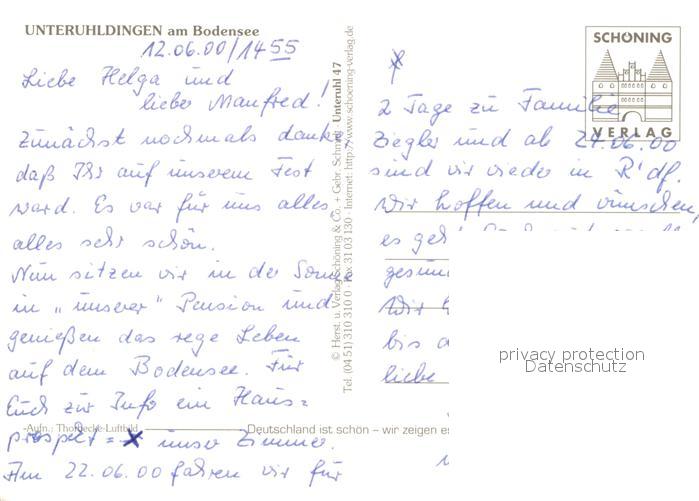 UNTERUHLDINGEN am Bodensee
12.06.00/14 55
Liebe Helga und
lieber Manfred!
Zunächst nochmals danke,
daß Ihr auf unserem Fest
ward. Es war für uns alles,
alles sehr schön.
Nun sitzen wir in der Sonne
in "unserer" Pension und
genießen das rege Leben
auf dem Bodensee. Für
Euch zur Info ein Haus=
prospekt = x unser Zimmer.
Am 22.06.00 fahren wir für
-Aufn.: Thorbecke-Luftbild
Deutschland ist schön – wir zeigen es
© Herst. u. Verlag Schöning & Co. + Gebr. Schmidt Unteruhl 47
Tel. (04 51) 310 310 0 · Fax 31 03 130 · Internet: http://www.schoening-verlag.de
SCHÖNING
VERLAG
2 Tage zu Familie
Ziegler und ab 24.06.00
sind wir wieder in R'df.
Wir hoffen und wünschen,
es geh
gesun
Wir h
bis d
liebe
privacy protection
Datenschutz